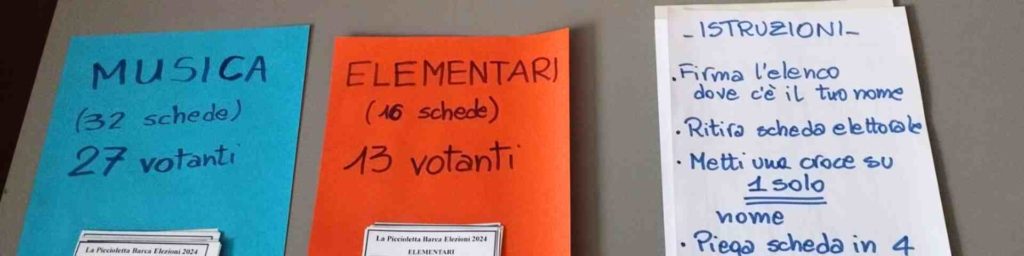 MUSICA
(32 schede)
27 votanti
La Piccioletta Barca Elezioni 2024
ELEMENTARI
(16 schede)
13 votanti
La Piccioletta Barca Elezioni 2024
ELEMENTARI
-ISTRUZIONI-
• Firma l'elenco
dove c'è il tuo nome
• Ritira scheda elettorale
• Metti una croce su
1 solo
nome
• Piega scheda in 4